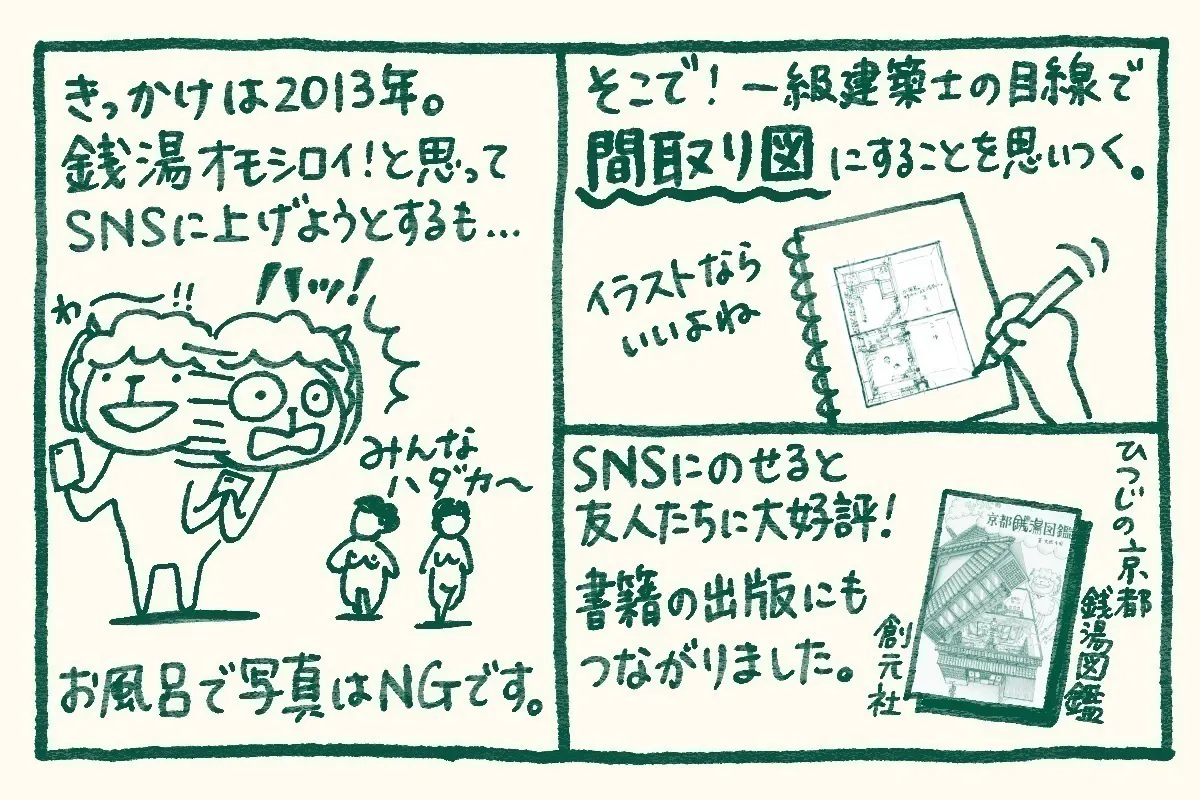 きっかけは2013年。
銭湯オモシロイ!と思って
SNSに上げようとするも…
わ
!!
ハッ!
みんな
ハダカ〜
お風呂で写真はNGです。
そこで!一級建築士の目線で
間取り図にすることを思いつく。
イラストなら
いいよね
SNSにのせると
友人たちに大好評!
書籍の出版にも
つながりました。
京都銭湯図鑑
ひつじの京都
銭湯図鑑
創元社